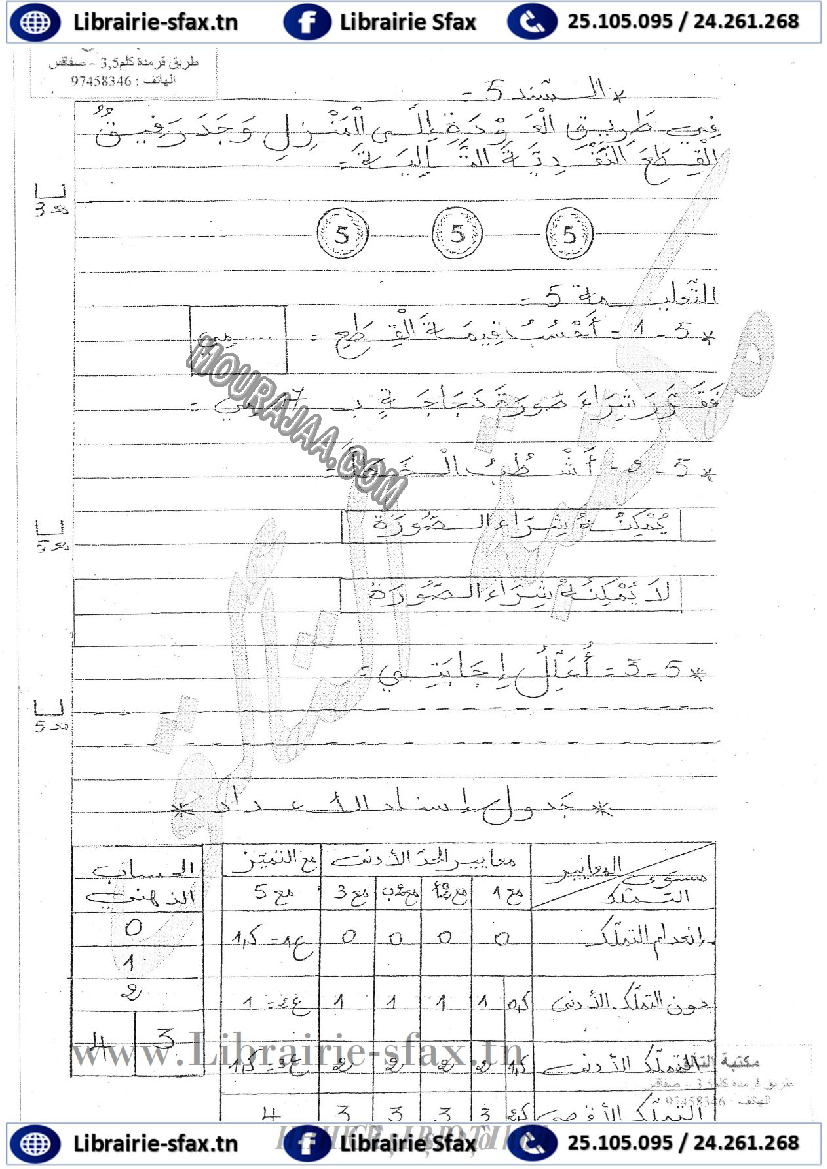 Librairie-sfax.tn Librairie Sfax 25.105.095 / 24.261.268
طريق قرمدة كلم3,5 - صفاقس
الهاتف : 97458346
* السّند 5 -
فِي طَرِيقِ الْعَوْدَةِ إِلَى الْمَنْزِلِ وَجَدَ رَفِيقُ
الْقِطَعَ النَّقْدِيَّةَ التَّالِيَةَ :
مع 3
5 5 5
التّعليمة 5 -
* 5 - 1 - أَحْسُبُ قِيمَةَ الْقِطَعِ : ..... مي
MOURAJAA.COM
فَقَرَّرَ شِرَاءَ صُورَةِ دَجَاجَةٍ بِـ
* 5 - 2 - أَشْطُبُ الْخَطَأَ
مع 5
يُمْكِنُهُ شِرَاءَ الصُّورَةِ
لَا يُمْكِنُهُ شِرَاءَ الصُّورَةِ
* 5 - 3 - أُعَلِّلُ إِجَابَتِي :
مع 5
* جدول إسناد الأعداد *
المعايير
مستوى التملّك
معايير الحدّ الأدنى
مع التميّز
الحساب الذهني
مع 1 مع 2أ مع 2ب مع 3 مع 5
إنعدام التملّك 0 0 0 0
0
1
دون التملّك الأدنى 1 1 1 1
2
التملّك الأدنى 2 2 2 2
3 4
التملّك الأقصى 3 3 3 3 4
www.Librairie-sfax.tn
طريق قرمدة كلم 3,5 - صفاقس
الهاتف : 97458346
Librairie-sfax.tn Librairie Sfax 25.105.095 / 24.261.268